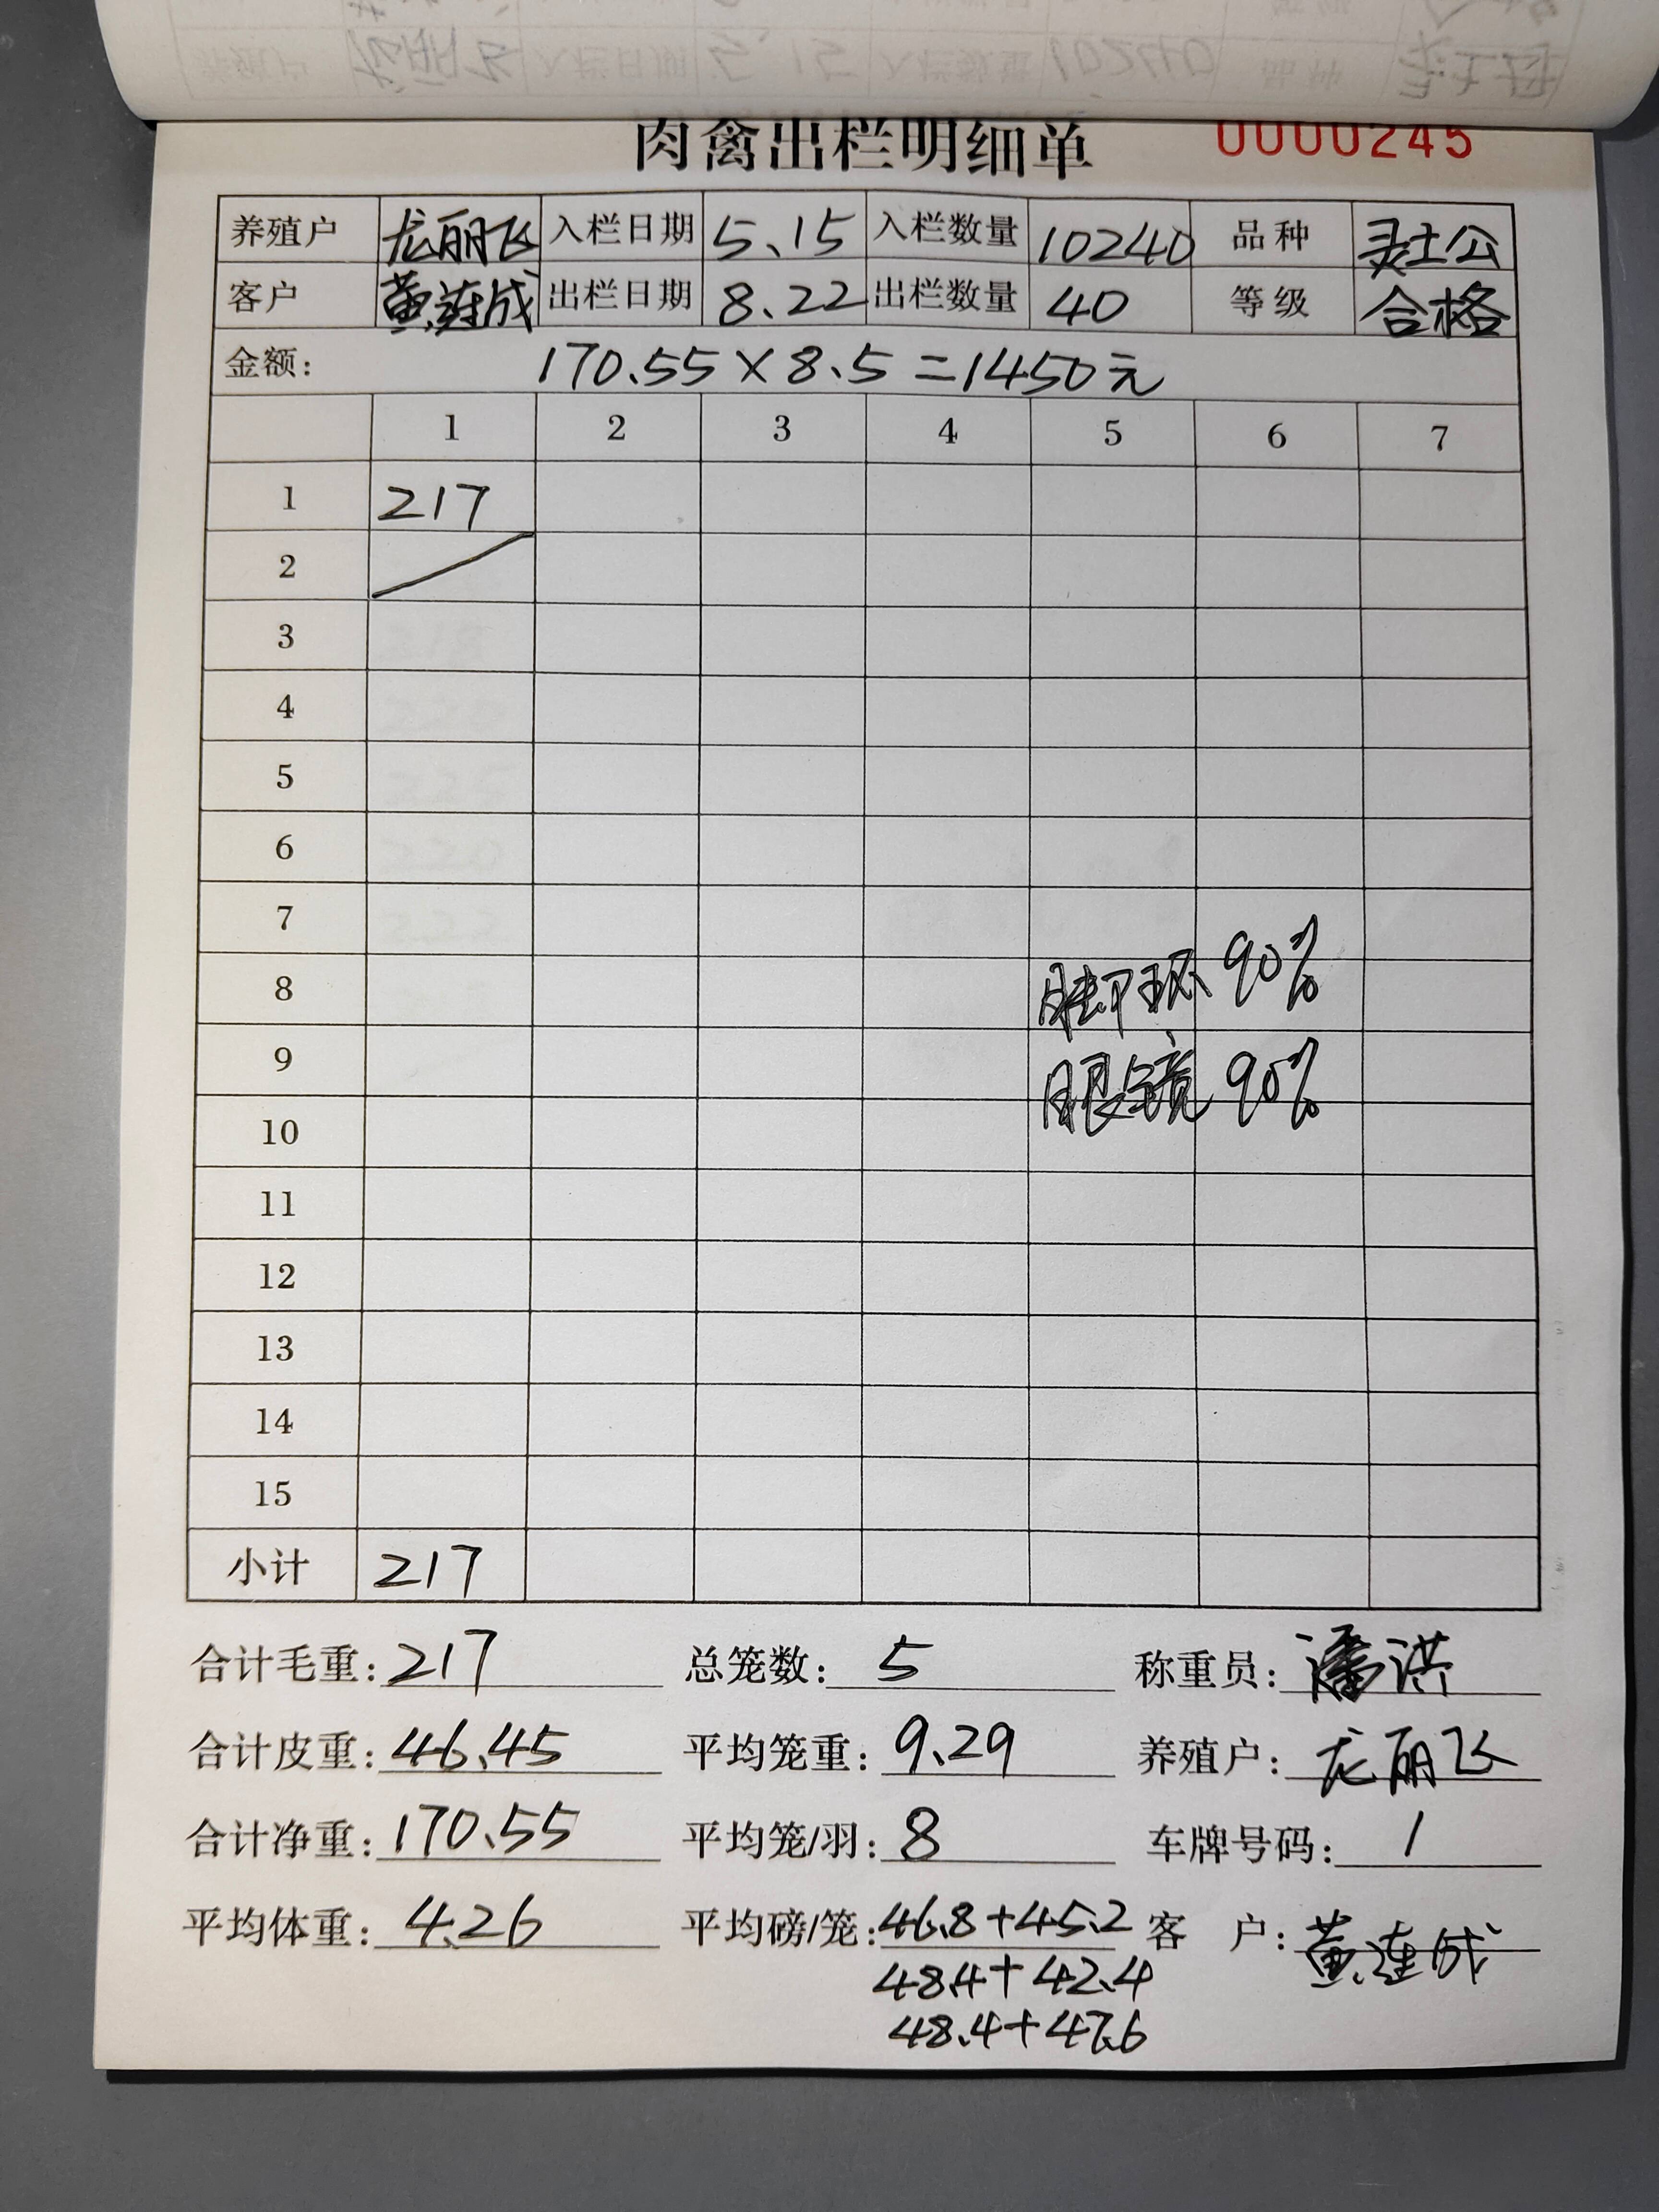 肉禽出栏明细单 0000245
养殖户 龙丽飞 入栏日期 5.15 入栏数量 10240 品种 灵土公
客户 黄莲成 出栏日期 8.22 出栏数量 40 等级 合格
金额： 170.55×8.5=1450元
1 2 3 4 5 6 7
1 217
2
3
4
5
6
7
8 脚环 90%
9 眼镜 90%
10
11
12
13
14
15
小计 217
合计毛重：217 总笼数：5 称重员：潘洪
合计皮重：46.45 平均笼重：9.29 养殖户：龙丽飞
合计净重：170.55 平均笼/羽：8 车牌号码：1
平均体重：4.26 平均磅/笼：46.8+45.2 客 户：黄莲成
48.4+42.4
48.4+47.6